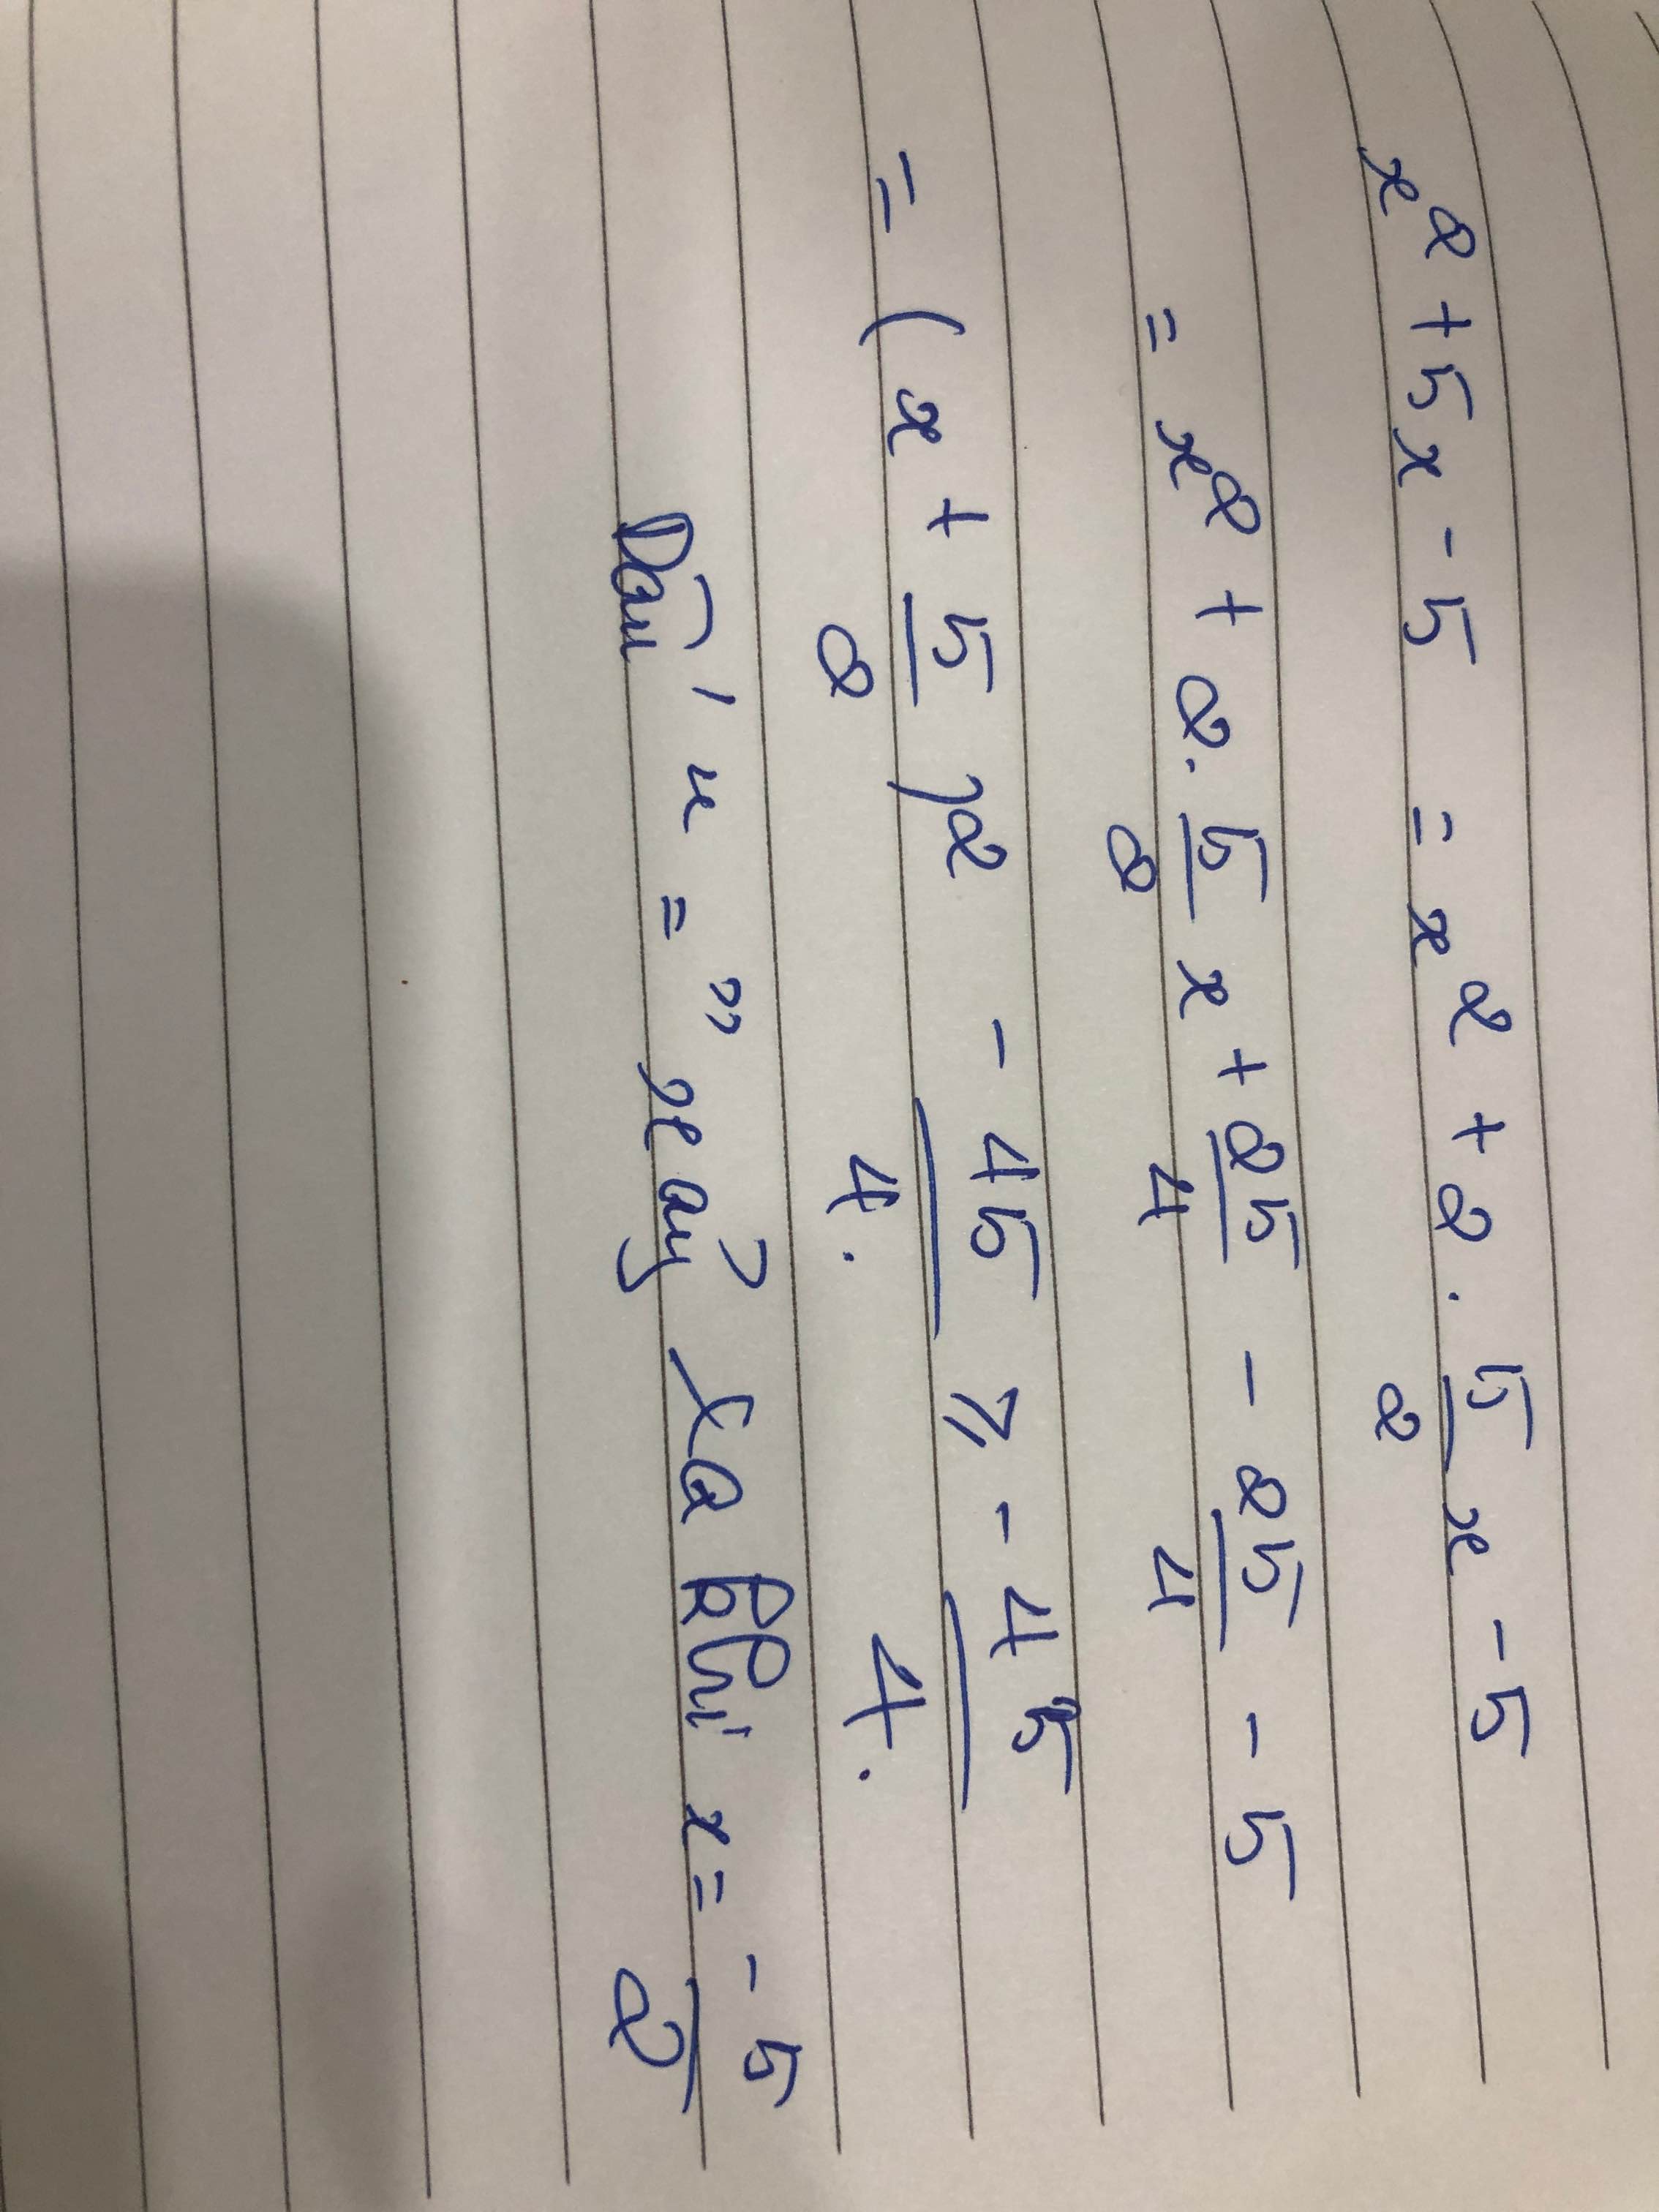 x² + 5x - 5 = x² + 2. 5/2 x - 5
= x² + 2. 5/2 x + 25/4 - 25/4 - 5
= (x + 5/2)² - 45/4. ⩾ - 45/4.
Dấu " = " xảy ra khi x = -5/2